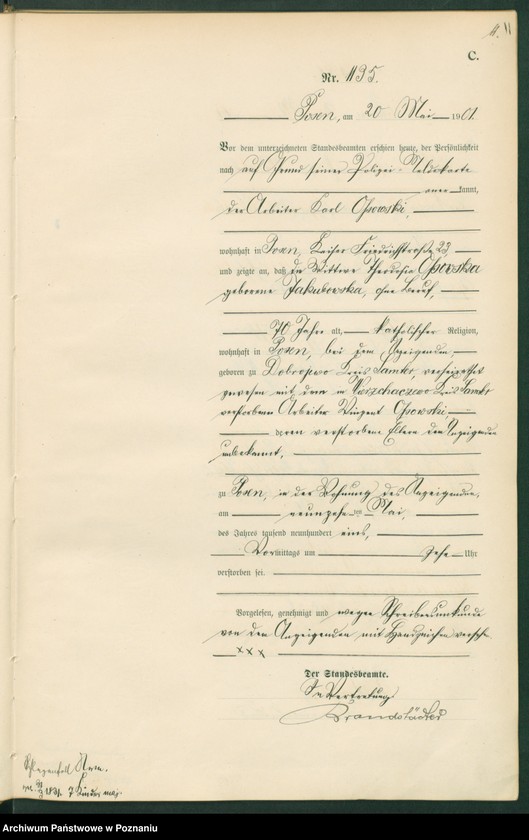 11
C.
Nr. 1135.
Posen, am 20 Mai 1901.
Vor dem unterzeichneten Standesbeamten erschien heute, der Persönlichkeit
nach auf Grund seiner Polizei-Meldekarte
anerkannt,
der Arbeiter Karl Osowski,
wohnhaft in Posen, Kaiser Friedrichstraße 23
und zeigte an, daß die Wittwe Theodosia Osowska
geborene Jakubowska, ohne Beruf,
70 Jahre alt, katholischer Religion,
wohnhaft in Posen, bei dem Anzeigenden,
geboren zu Kreis Samter, verheirathet
gewesen mit dem in Kreis Samter
verstorbenen Arbeiter Vinzent Osowski,
deren verstorbene Eltern dem Anzeigenden
unbekannt,
zu Posen, in der Wohnung des Anzeigenden,
am neunzehnten Mai,
des Jahres tausend neunhundert eins,
Vormittags um zehn Uhr
verstorben sei.
Vorgelesen, genehmigt und wegen Schreibensunkunde
von dem Anzeigenden mit Handzeichen versehen
xxx
Der Standesbeamte.
In Vertretung
Brandstädter
1831. 7 Kinder maj.
Archiwum Państwowe w Poznaniu